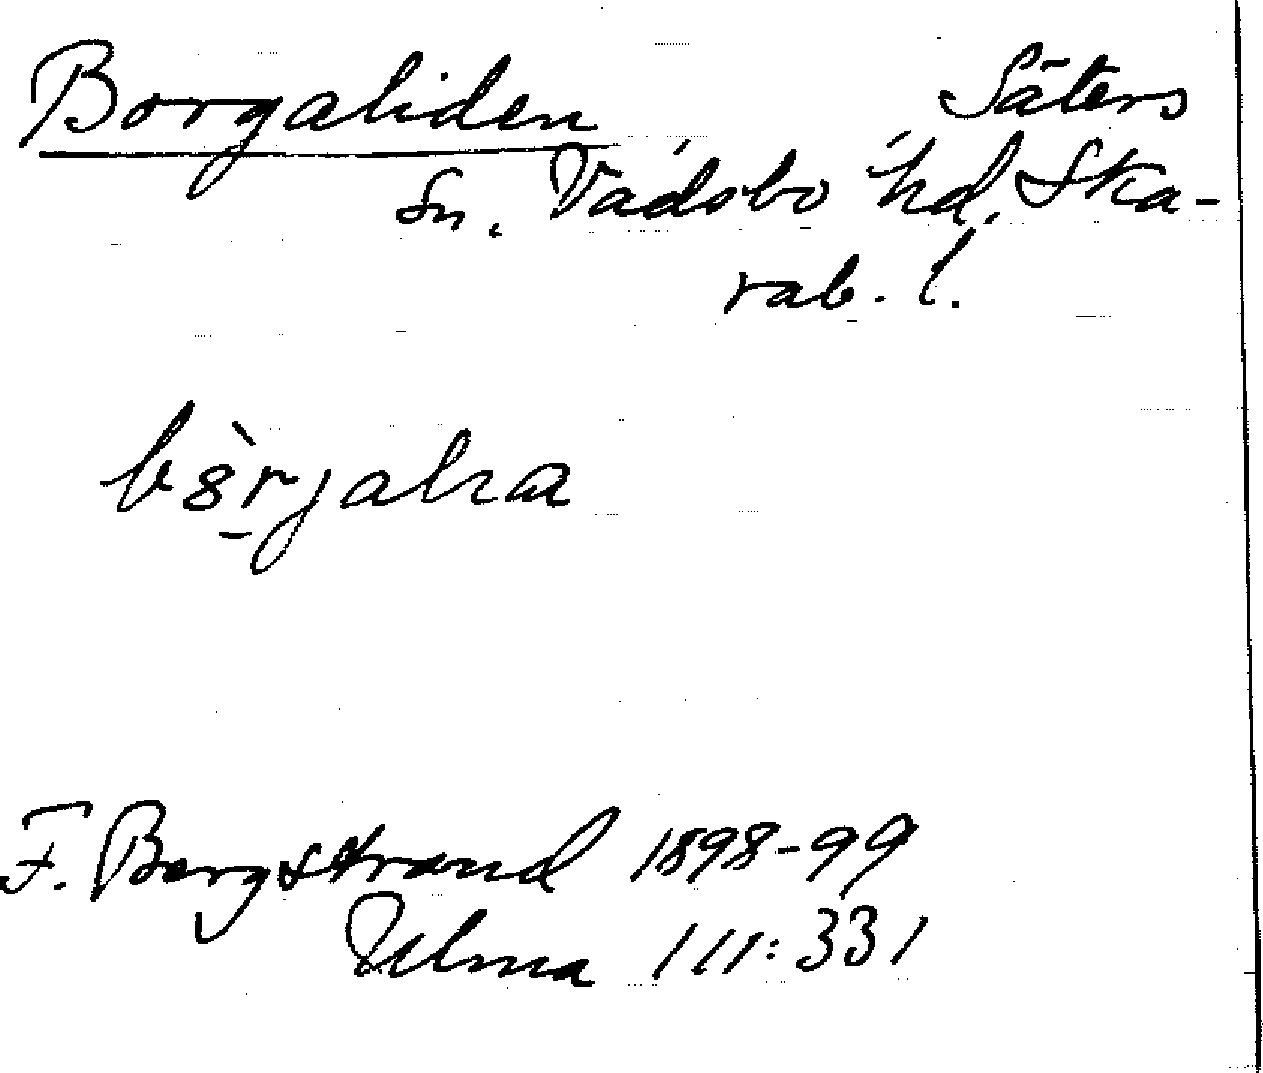 Borgaliden Säters
Sn. Vadsbo hd. Ska-
rab. l.
F. Bergstrand 1898-99
Ulma 111:331